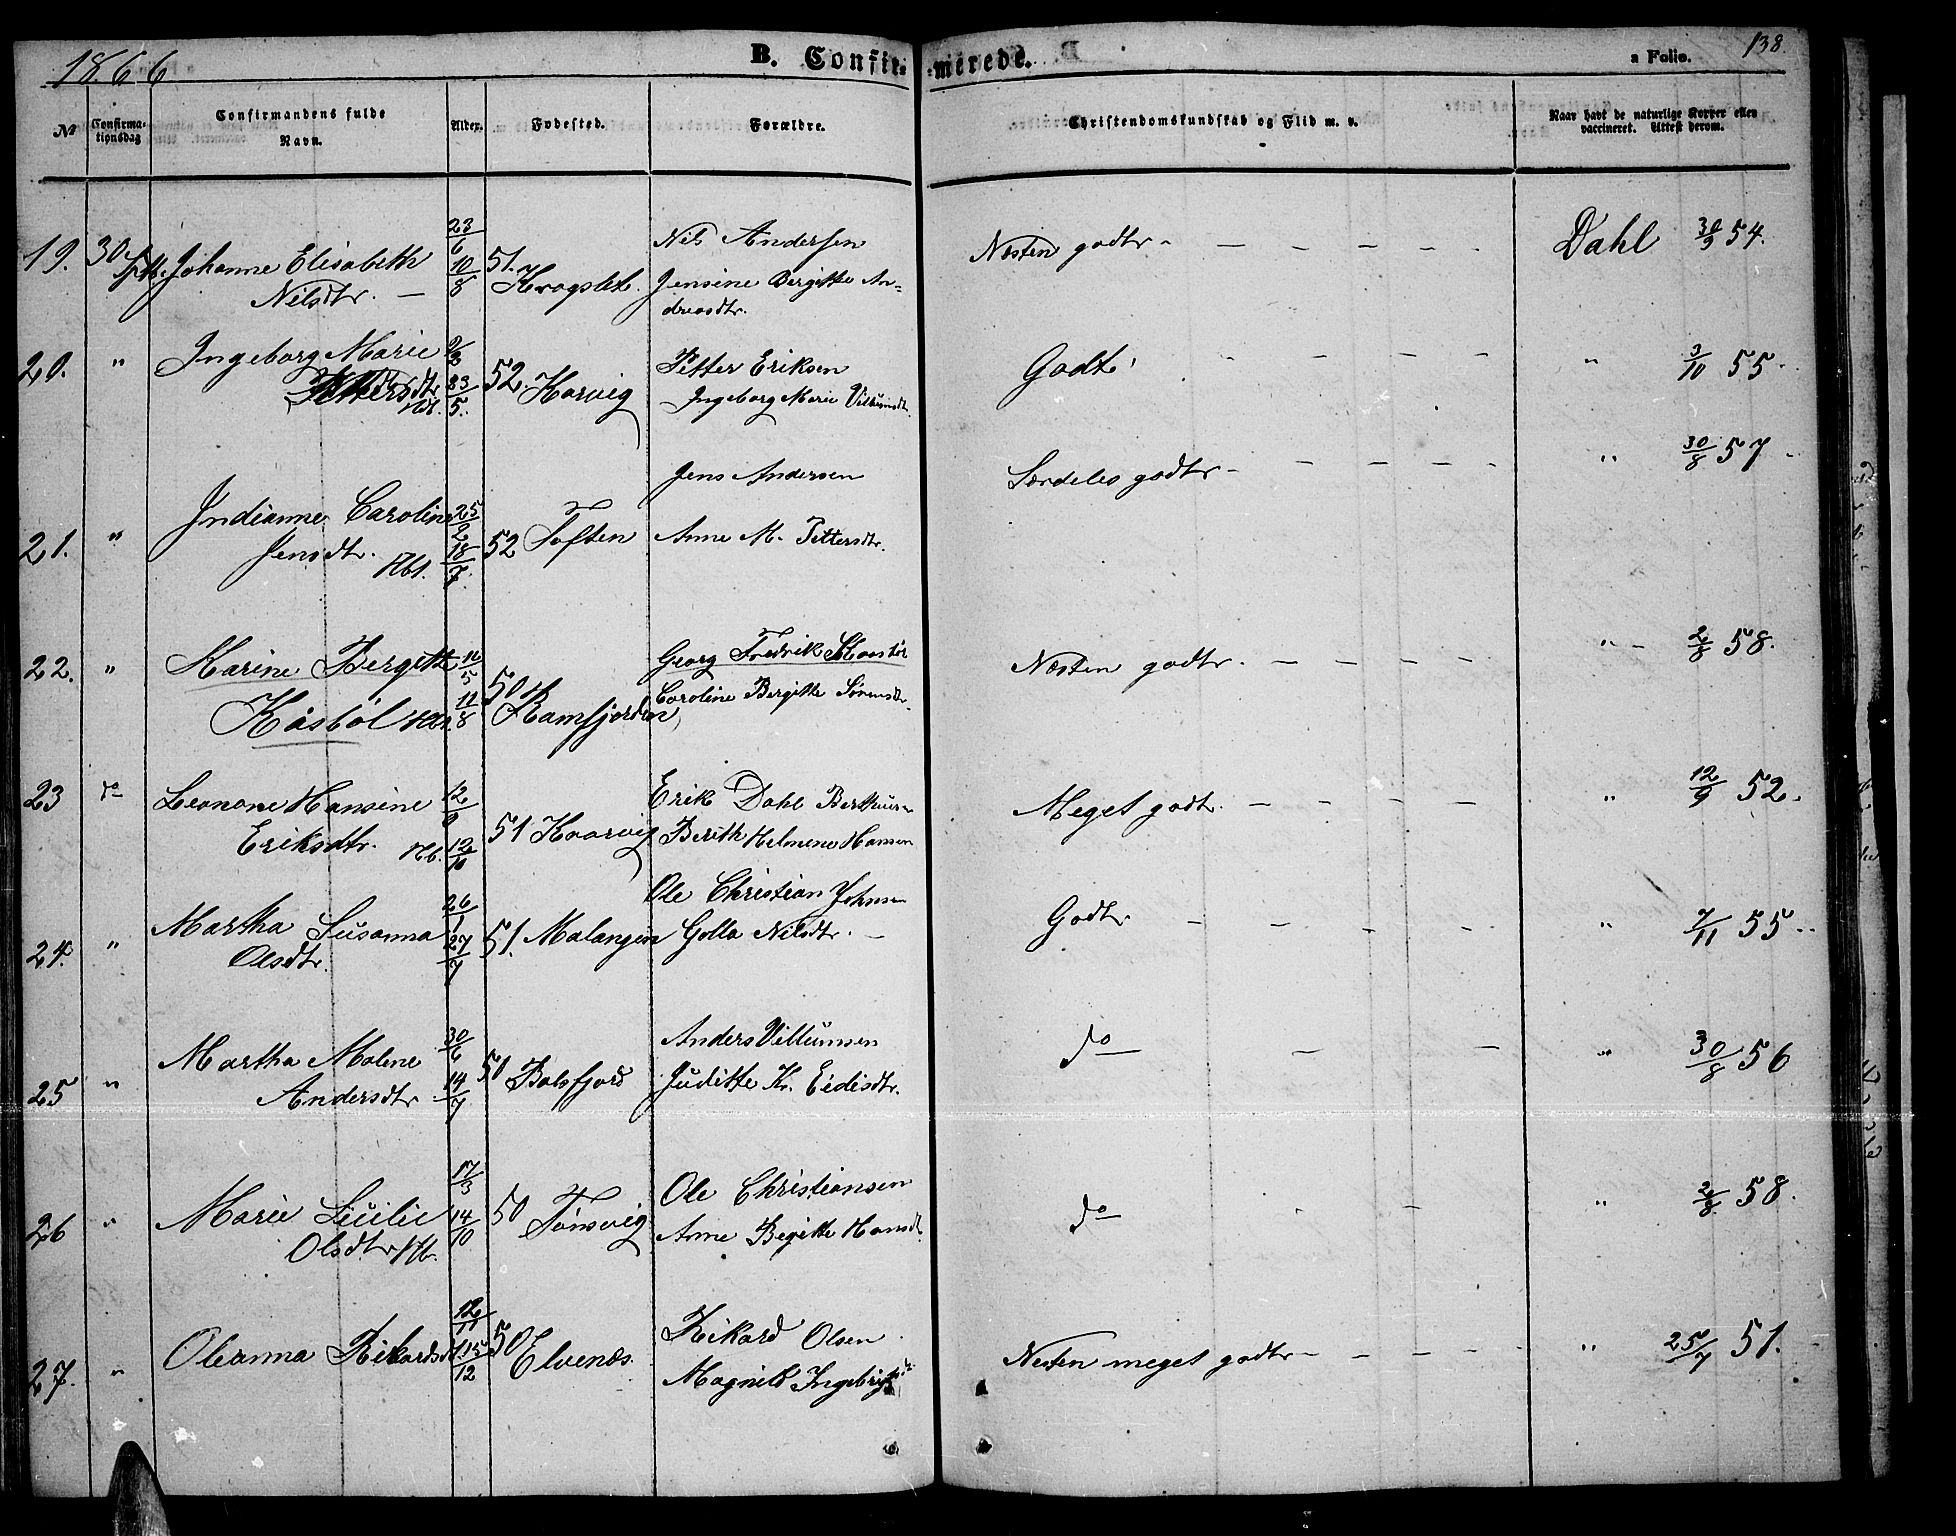 1866
B. Confir-
-merede.
a Folio. 138
No
Confirma-
tionsdag
Confirmandens fulde
Navn.
Alder.
Fødested.
Forældre.
Christendomskundskab og Flid m. v.
Naar havt de naturlige Kopper eller
vaccineret. Attest derom.
19. 30 Sptb. Johanne Elisabeth
Nilsdtr. —
23/6 51.
10/8
Nils Andersen
Jensine Bergitte An=
dreasdtr.
Næsten godt — — — — —
Dahl 30/9 54.
20. " Ingeborg Marie
Pettersdtr
52. Korvig
23/5.
Petter Eriksen
Ingeborg Marie Villumsdtr.
Godt
" 3/10 55.
21. " Indianne Caroline
Jensdtr.
25/2 52 Toften
18/7.
Jens Andersen
Anne M. Pettersdtr.
Særdeles godt — — — —
" 30/8 57
22. " Karine Bergitte
Kåsbøl
11/5 50 Ramfjorden
11/8
Georg Fredrik
Caroline Bergitte Sørensdtr.
Næsten godt. — — — — —
" 2/8 58.
23 do Leonore Hansine
Eriksdtr. Hb.
12/9 51 Kaarvig
12/10
Erik Dahl
Berith Helmene Hansen
Meget godt. — — — —
" 12/9 52.
24. " Martha Susanna
Olsdtr.
26/1 51. Malangen
27/7
Ole Christian Johnsen
Golla Nilsdtr. —
Godt — — — —
" 7/11 55.
25 " Martha Malene
Andersdtr
30/6 51 Balsfjord
14/7
Anders Villumsen
Juditte K. Eidisdtr.
do — —
" 30/8 56
26 " Marie Lucilie
Olsdtr Hb.
17/3 50 Tønsvig
14/10
Ole Christiansen
Anne Begitte Hansdt.
do —
" 2/8 58.
27. " Oleanna Rikardsdt
12/11 50 Elvenæs.
15/12
Rikard Olsen
Magnild
Næsten meget godt — — — — —
" 25/7 51.